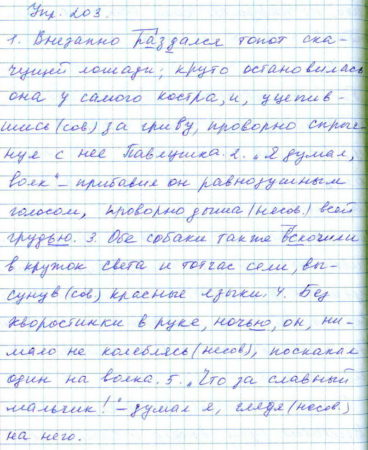 Упр. 203.
1. Внезапно раздался топот ска-
чущей лошади, круто остановилась
она у самого костра, и, уцепив-
шись (сов) за гриву, проворно спрыг-
нул с неё Павлушка. 2. „Я думал,
волк" – прибавил он равнодушным
голосом, проворно дыша (несов.) всей
грудью. 3. Обе собаки также вскочили
в кружок света и тотчас сели, вы-
сунув (сов) красные языки. 4. Без
хворостинки в руке, ночью, он, ни-
мало не колеблясь (несов), поскакал
один на волка. 5. „Что за славный
мальчик!" – думал я, глядя (несов.)
на него.